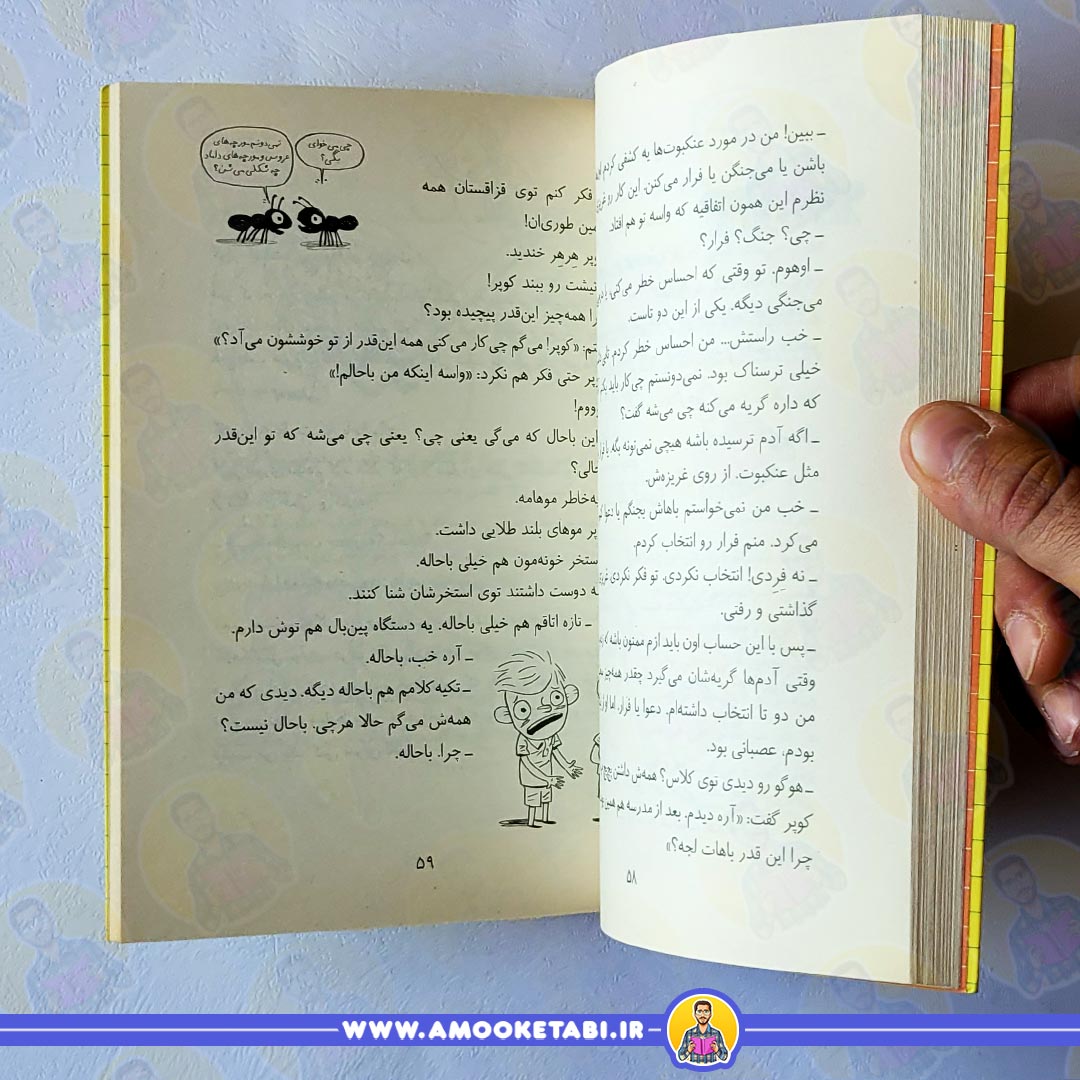 ـ ببین! من در مورد عنکبوت‌ها یه کشفی کردم
باشن یا می‌جنگن یا فرار می‌کنن. این کار رو
نظرم این همون اتفاقیه که واسه تو هم افتاد.
ـ چی؟ جنگ؟ فرار؟
ـ اوهوم. تو وقتی که احساس خطر می‌کنی یا
می‌جنگی دیگه. یکی از این دو تاست.
ـ خب راستش... من احساس خطر کردم
خیلی ترسناک بود. نمی‌دونستم چی‌کار باید
که داره گریه می‌کنه چی می‌شه گفت؟
ـ اگه آدم ترسیده باشه هیچی نمی‌تونه بگه. یا
مثل عنکبوت. از روی غریزه‌ش.
ـ خب من نمی‌خواستم باهاش بجنگم یا دعوا
می‌کرد. منم فرار رو انتخاب کردم.
ـ نه فِرِدی! انتخاب نکردی. تو فکر نکردی
گذاشتی و رفتی.
ـ پس با این حساب اون باید ازم ممنون باشه
وقتی آدم‌ها گریه‌شان می‌گیرد چقدر همه‌چیز
من دو تا انتخاب داشته‌ام. دعوا یا فرار. اما
بودم، عصبانی بود.
ـ هوگو رو دیدی توی کلاس؟ همه‌ش داشتن
کوپر گفت: «آره دیدم. بعد از مدرسه هم
چرا این قدر باهات لجه؟»
۵۸
چی‌چی‌ خوای
بگی؟
نمی‌دونم مورچه‌های
عروس و مورچه‌های داماد
چه شکلی می‌شن؟
فکر کنم توی قزاقستان همه
مین طوری‌ان!
وپر هِرهِر خندید.
نیشت رو ببند کوپر!
را همه‌چیز این‌قدر پیچیده بود؟
تم: «کوپر! می‌گم چی‌کار می‌کنی همه این‌قدر از تو خوششون می‌آد؟»
وپر حتی فکر هم نکرد: «واسه اینکه من باحالم!»
وووم!
این باحال که می‌گی یعنی چی؟ یعنی چی می‌شه که تو این‌قدر
حالی؟
ه‌خاطر موهامه.
پر موهای بلند طلایی داشت.
ستخر خونه‌مون هم خیلی باحاله.
ه دوست داشتند توی استخرشان شنا کنند.
ـ تازه اتاقم هم خیلی باحاله. یه دستگاه پین‌بال هم توش دارم.
ـ آره خب، باحاله.
ـ تکیه‌کلامم هم باحاله دیگه. دیدی که من
همه‌ش می‌گم حالا هرچی. باحال نیست؟
ـ چرا. باحاله.
۵۹
WWW.AMOOKETABI.IR